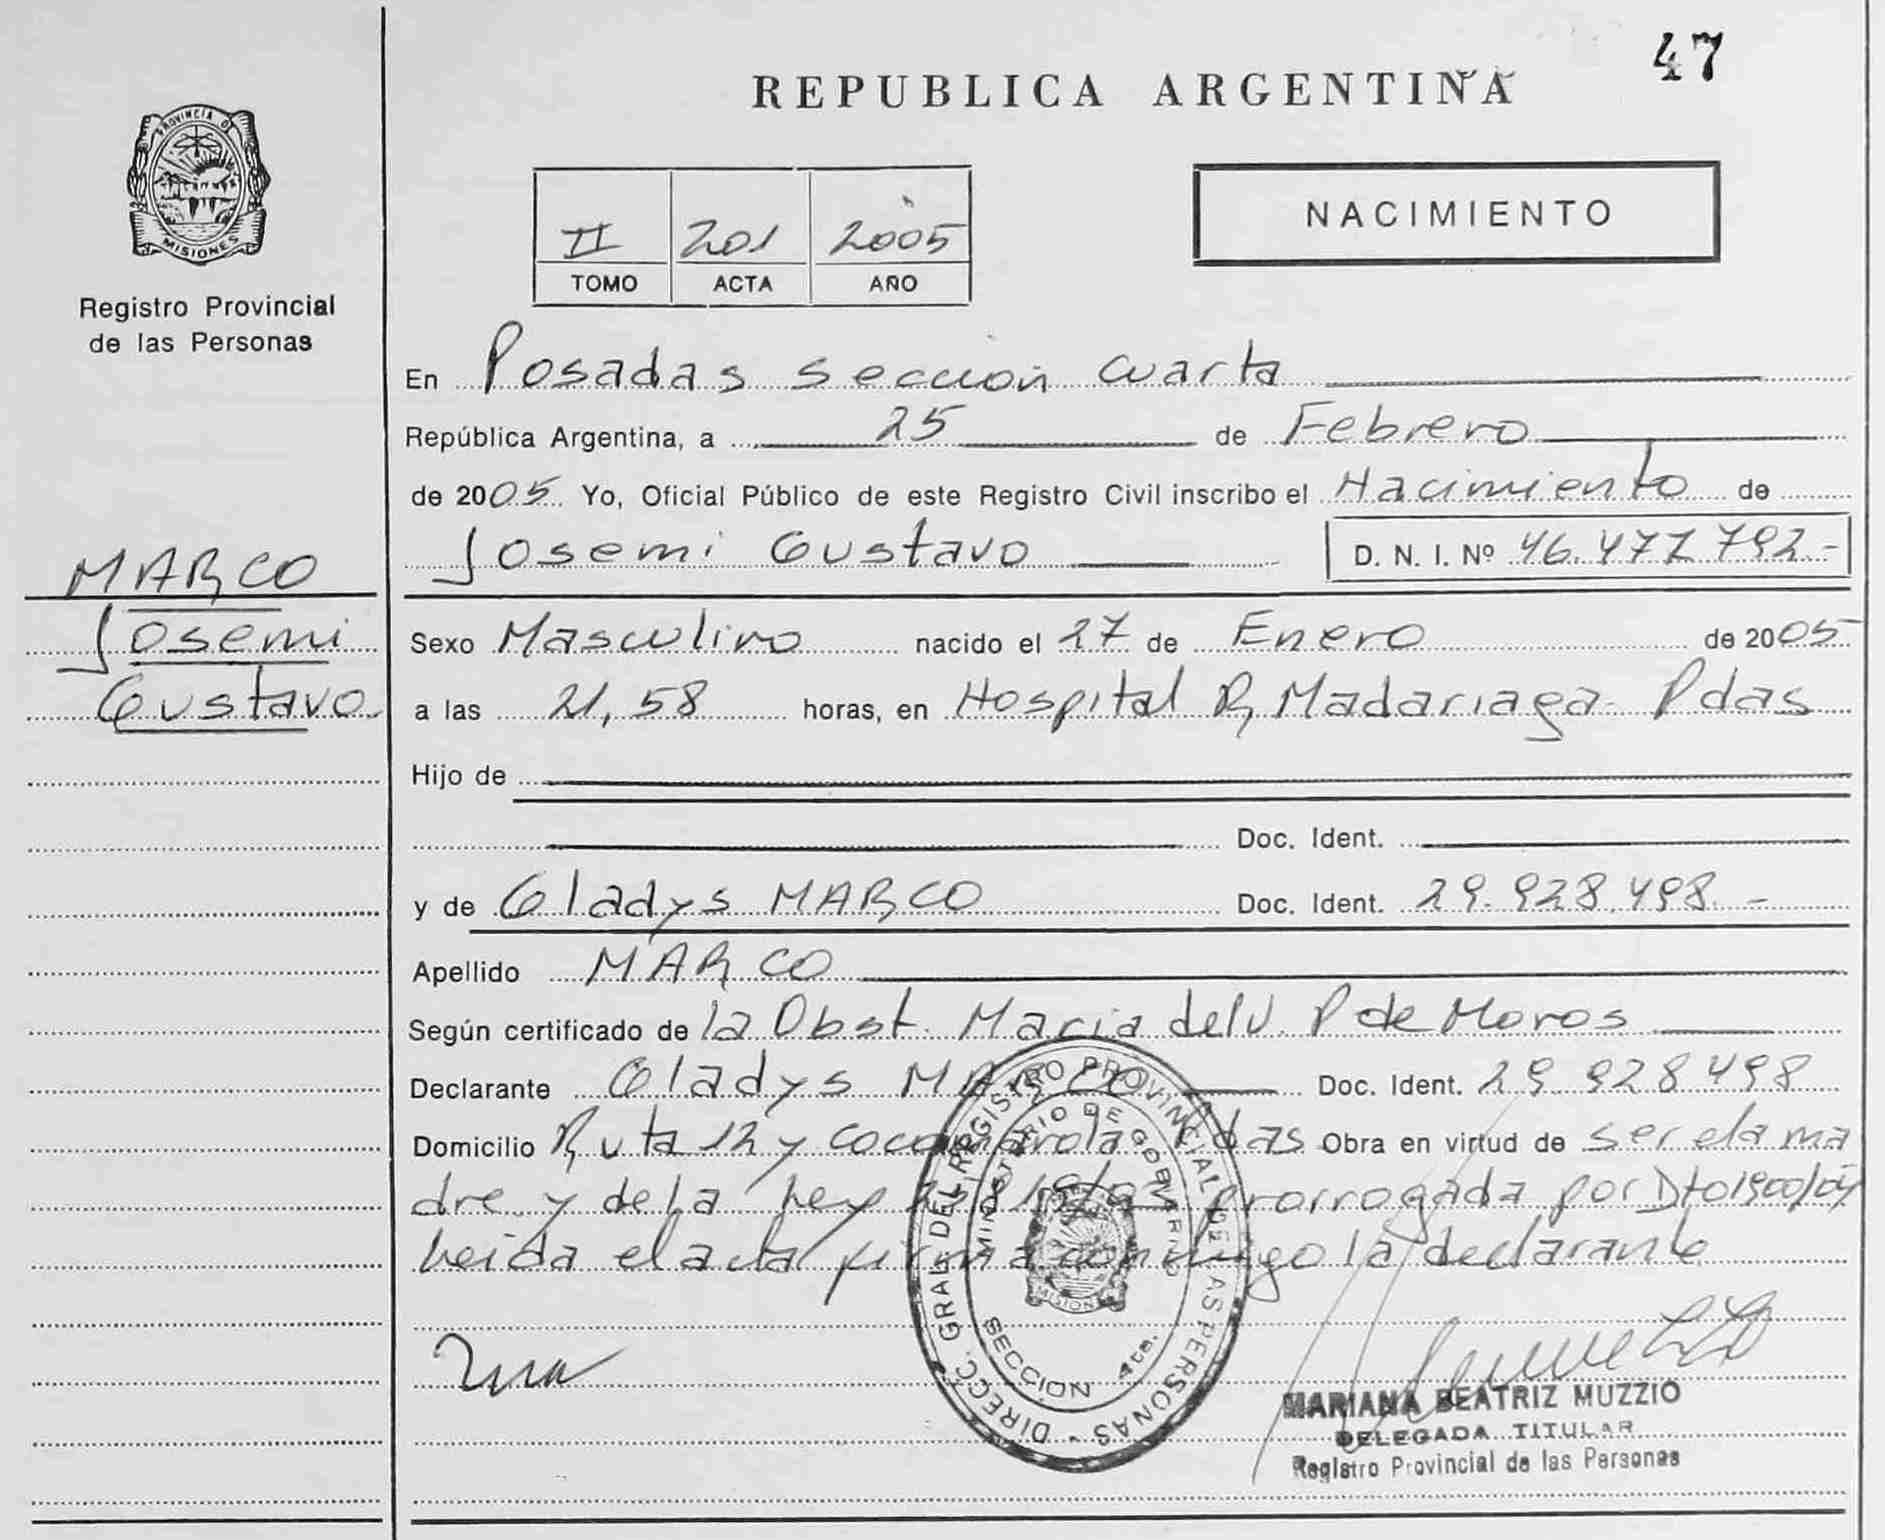 47
REPUBLICA ARGENTINA
PROVINCIA D
MISIONES
Registro Provincial
de las Personas
NACIMIENTO
II 201 2005
TOMO ACTA AÑO
En Posadas sección cuarta
República Argentina, a 25 de Febrero
de 2005 Yo, Oficial Público de este Registro Civil inscribo el Nacimiento de
Josemi Gustavo D. N. I. Nº 46.477.792.-
MARCO
Josemi
Gustavo
Sexo Masculino nacido el 27 de Enero de 2005
a las 21,58 horas, en Hospital R, Madariaga - Pdas
Hijo de
Doc. Ident.
y de Gladys MARCO Doc. Ident. 29.928.498.-
Apellido MARCO
Según certificado de la Obst. Maria del V. P de Moros
Declarante Gladys MARCO Doc. Ident. 29 928 498
Domicilio Ruta 12 y cocomarola Pdas Obra en virtud de ser ela ma
dre y de la Ley prorrogada por Dto 1900/04
Leida el acta firma conmigo la declarante
DIRECC. GRAL. DEL REGISTRO PROVINCIAL DE LAS PERSONAS -
MINISTERIO DE GOBIERNO
MISIONES
SECCIÓN 4ta.
MARIANA BEATRIZ MUZZIO
DELEGADA TITULAR
Registro Provincial de las Personas